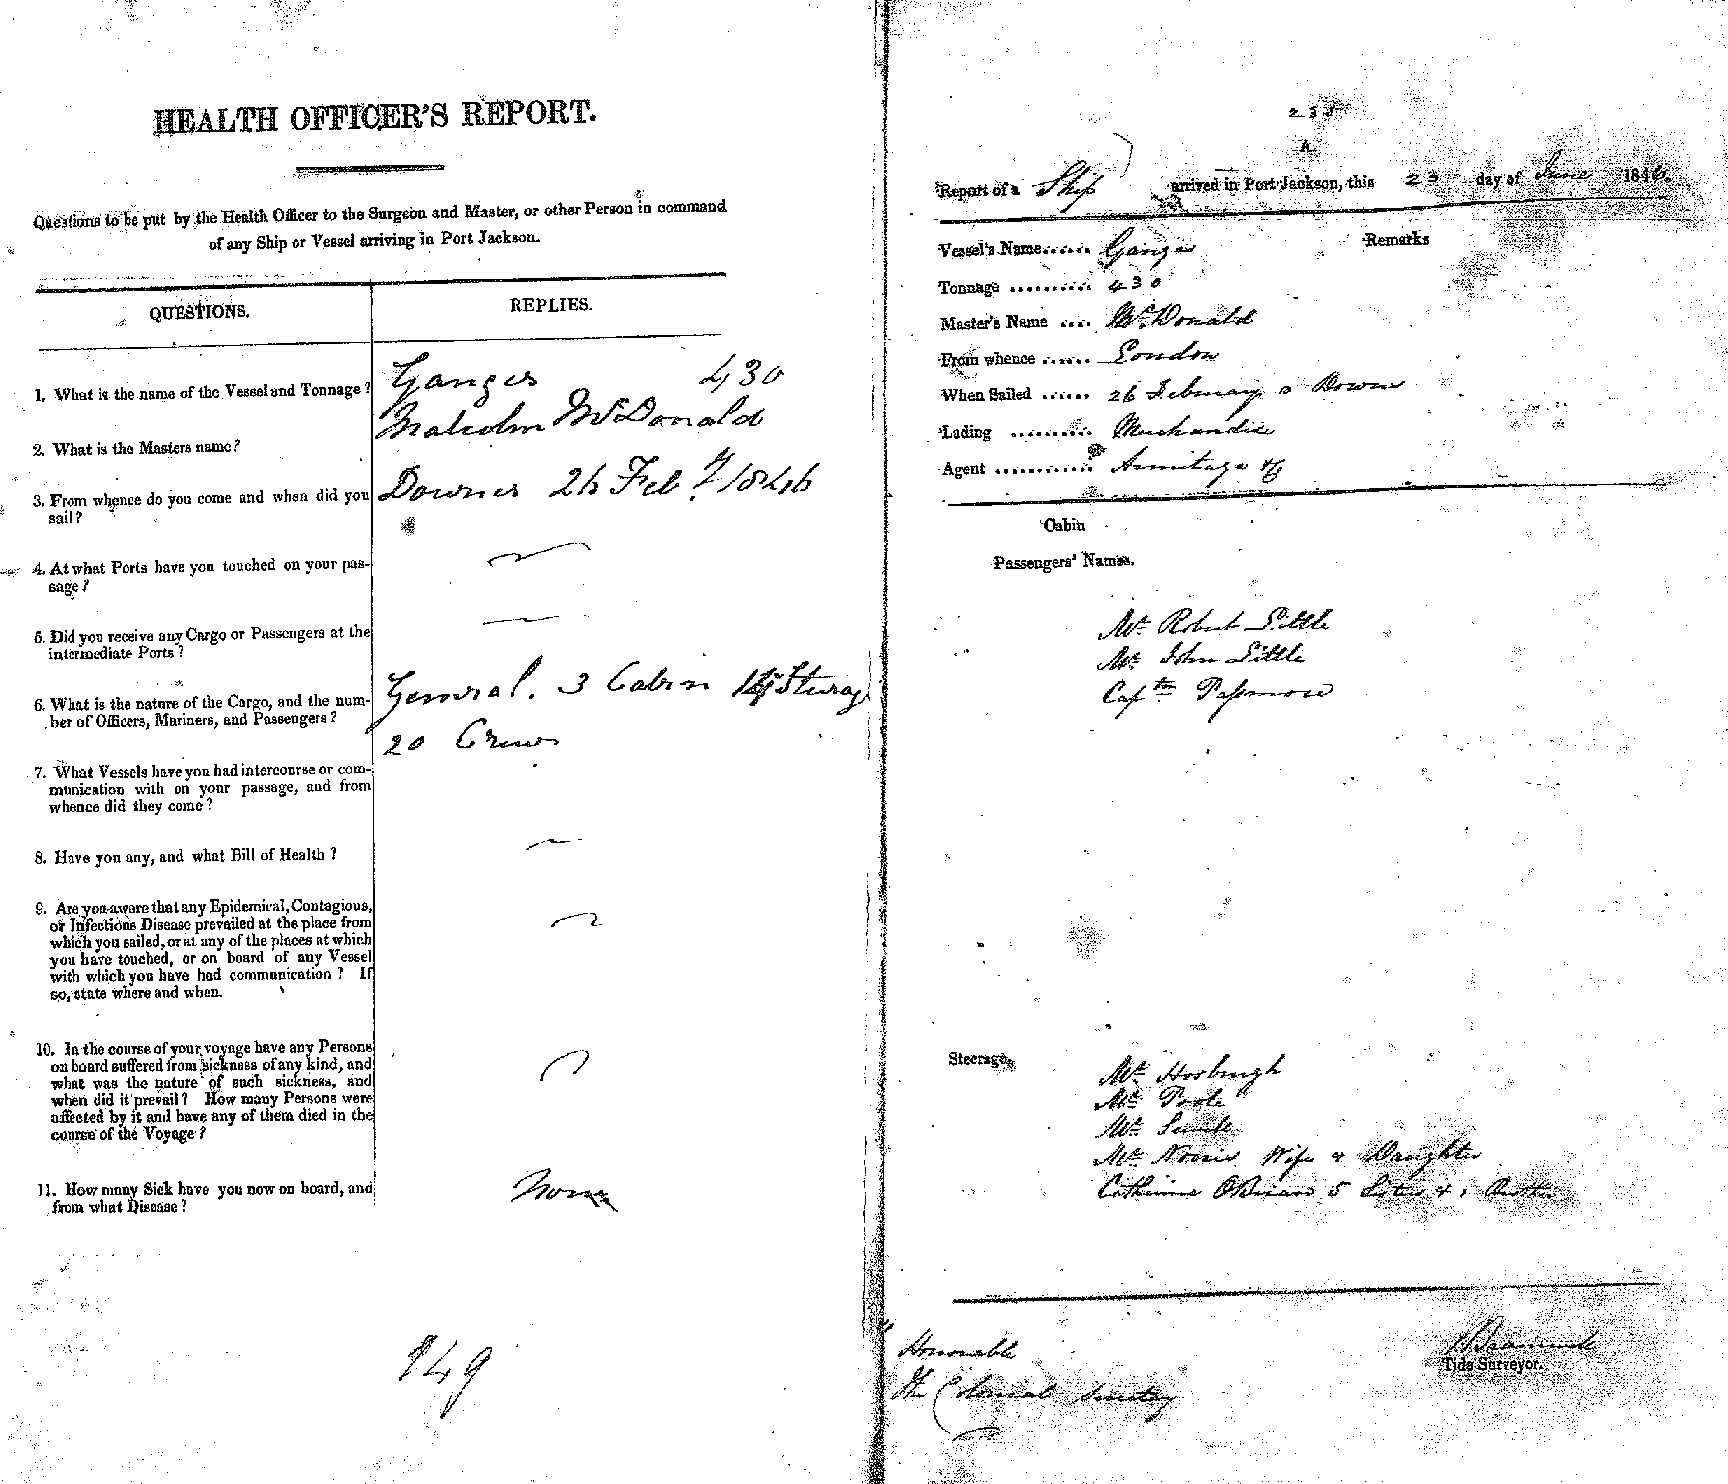 HEALTH OFFICER'S REPORT.
Questions to be put by the Health Officer to the Surgeon and Master, or other Person in command
of any Ship or Vessel arriving in Port Jackson.
QUESTIONS.
REPLIES.
1. What is the name of the Vessel and Tonnage?
Ganges 430
2. What is the Masters name?
Malcolm McDonald
3. From whence do you come and when did you
sail?
Downes 26 Feby 1846
4. At what Ports have you touched on your pas-
sage?
5. Did you receive any Cargo or Passengers at the
intermediate Ports?
6. What is the nature of the Cargo, and the num-
ber of Officers, Mariners, and Passengers?
General. 3 Cabin 14 Sturage
20 Crew
7. What Vessels have you had intercourse or com-
munication with on your passage, and from
whence did they come?
8. Have you any, and what Bill of Health?
9. Are you aware that any Epidemical, Contagious,
or Infectious Disease prevailed at the place from
which you sailed, or at any of the places at which
you have touched, or on board of any Vessel
with which you have had communication? If
so, state where and when.
10. In the course of your voyage have any Persons
on board suffered from sickness of any kind, and
what was the nature of such sickness, and
when did it prevail? How many Persons were
affected by it and have any of them died in the
course of the Voyage?
11. How many Sick have you now on board, and
from what Disease?
None
149
A
Report of a Ship arrived in Port Jackson, this 23 day of June 1846
Remarks
Vessel's Name...... Ganges
Tonnage ........... 430
Master's Name .... McDonald
From whence ...... London
When Sailed ...... 26 February Downs
Lading ........... Merchandise
Agent ............ Armitage & Co
Cabin
Passengers' Names.
Mr. Robert Little
Mr. John Little
Captn Passmore
Steerage
Mr. Horburgh
Mr. Poole
Mr.
Mr. Norris Wife & Daughter
Catherine OBrien 5 Sisters & 1 Brother
Honorable
The Colonial Secretary
Tide Surveyor.